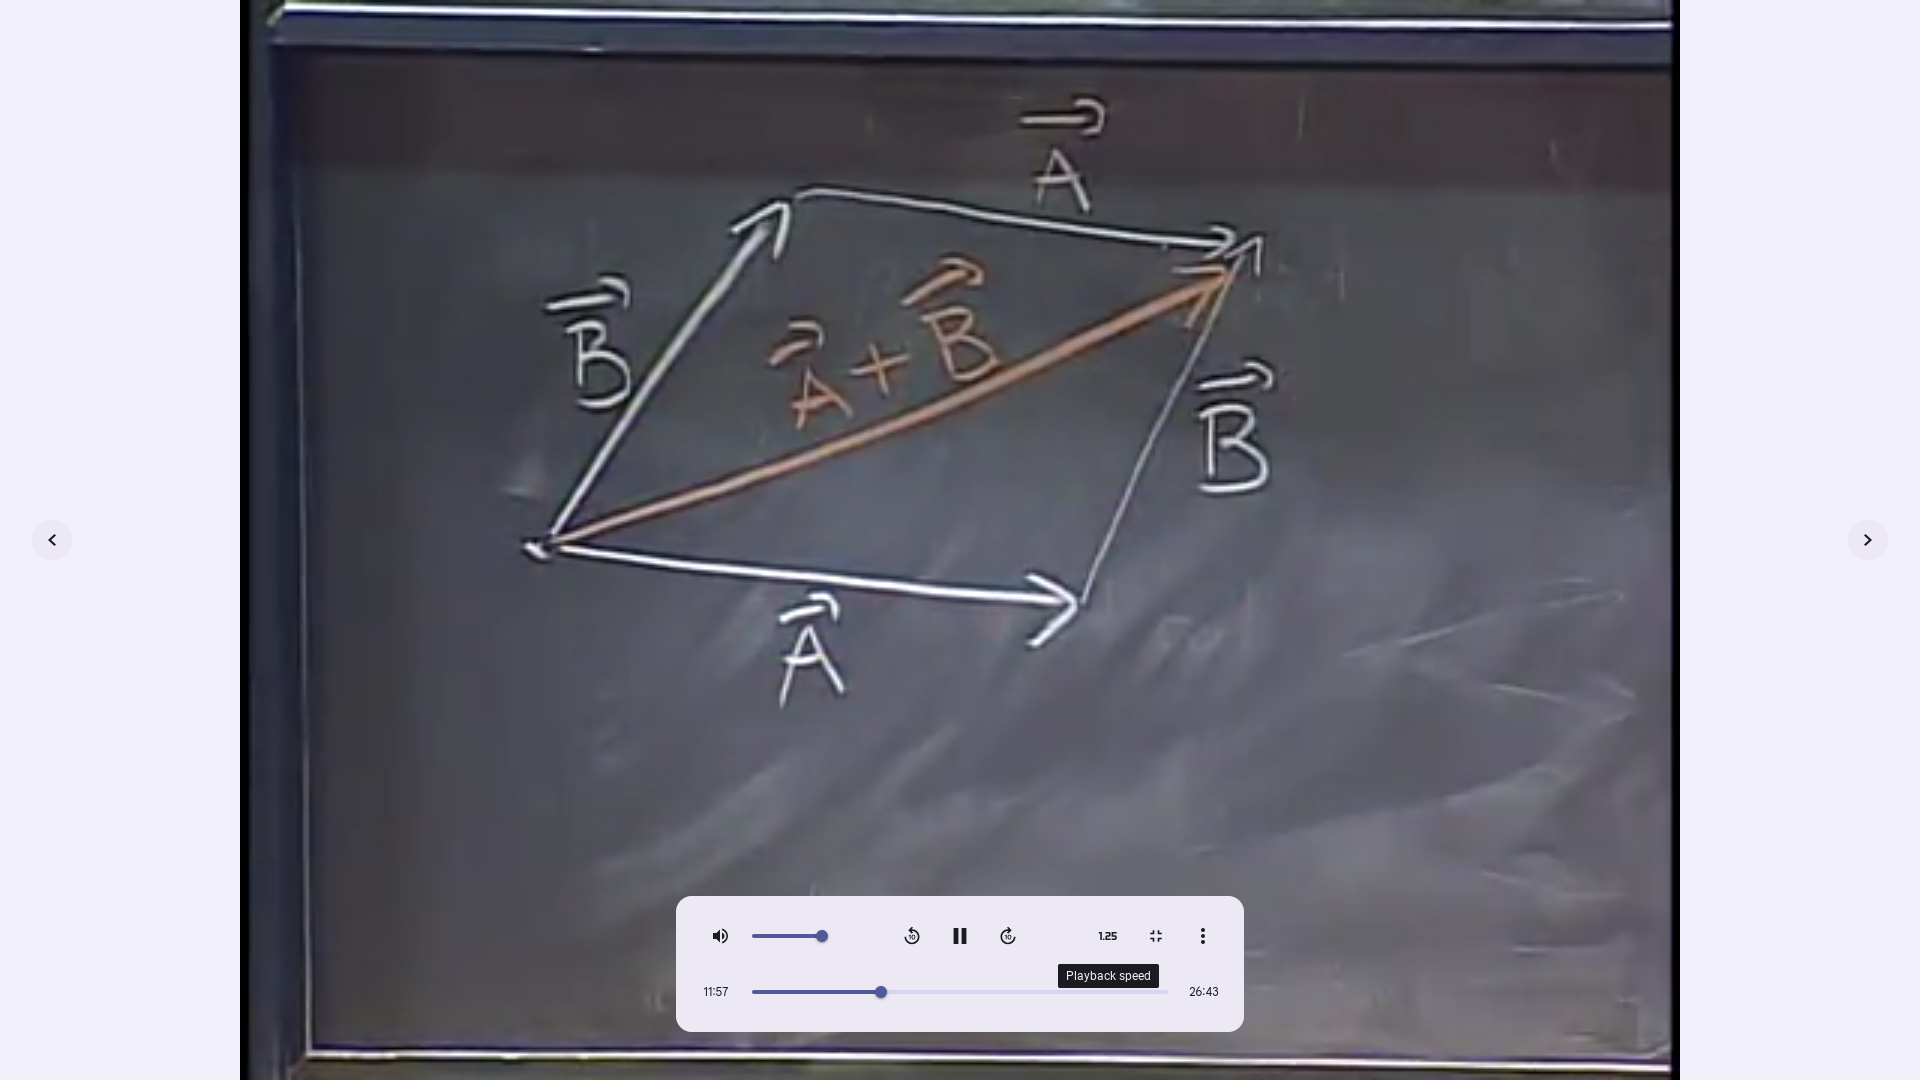 A
B
A + B
B
A
1.25
Playback speed
11:57
26:43